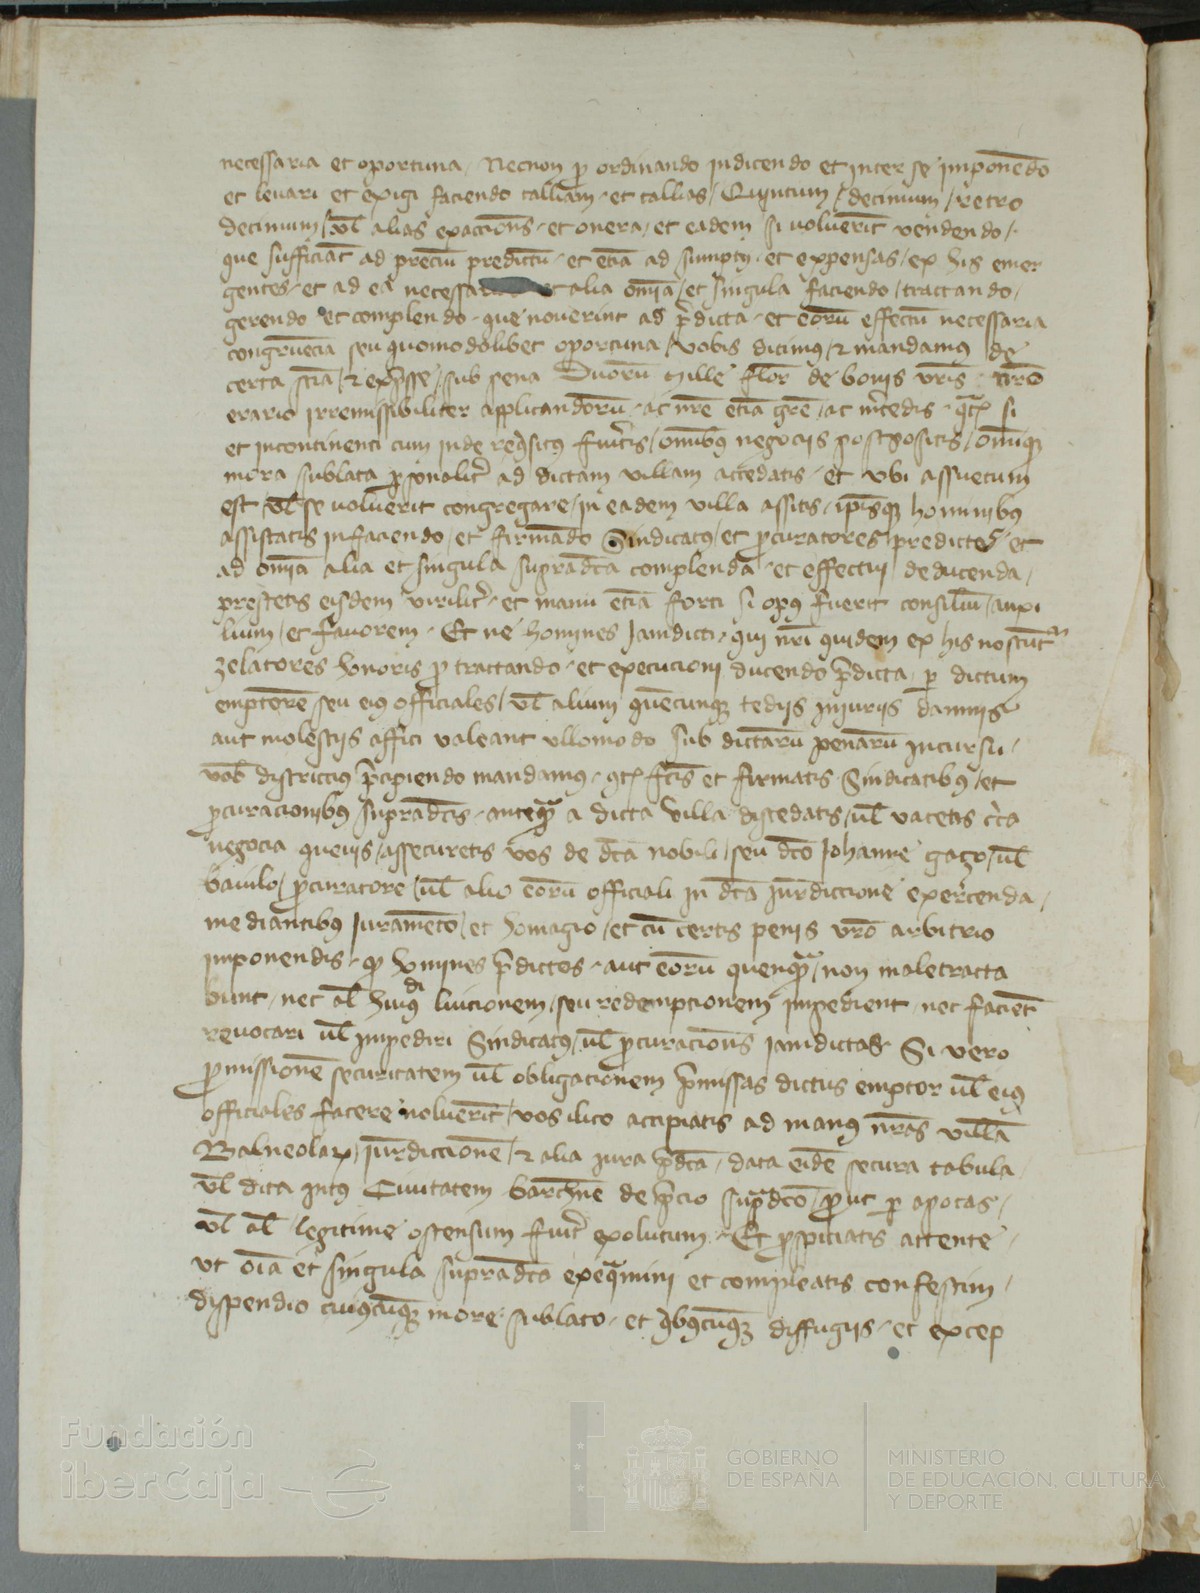 necessaria et oportuna / Necnon ꝑ ordinando indicendo et inter se imponēdo
et levari et exigi faciendo talliam et tallias / Quintum / decimum / retro
decimum / vl̄ alias exacciōns et onera / et eadem si voluerīt vendendo /
que sufficiāt ad preciū predictū et eciā ad sumptꝰ et expensas / ex his emer
gentes et ad ea necessaria et alia om̄ia / et singula faciendo / tractando /
gerendo et complendo que noverint ad p̄dicta et eorū effectū necessaria
congruēcia seu quomodolibet oportuna / Vobis dicimꝰ / ⁊ mandamꝰ de
certa sciā / ⁊ exp̄sse / sub pena Duorū Mille flor̄ de bonis vr̄is nr̄o
erario irremissibiliter applicandorū ac nr̄e eciā gr̄e / ac m̄cedis si
et incontinenti cum inde reqisitꝰ fūitis / om̄ibꝰ negociis postpositis / om̄iqꝫ
mora sublata ꝑsonalit̄ ad dictam villam accedatis et vbi assuetum
est vl̄ se voluerīt congregare / in eadem villa assitis / ip̄isqꝫ hominibꝰ
assistatis in faciendo / et firmādo Sindicatꝰ / et ꝓcuratores predictos et
ad om̄ia alia et singula supradc̄a complenda et effectui deducenda /
prestetis eisdem virilit̄ et manu eciā forti si opꝰ fuerit consiliū / auxi
lium / et favorem Et ne homines jamdicti qui nr̄i quidem ex his noscūtur
zelatores honoris ꝑ tractando et execucioni ducendo p̄dicta ꝑ dictum
emptorē seu eiꝰ officiales / vl̄ alium quēcunqꝫ tediis injuriis dampnis
aut molestiis affici valeant ullomodo sub dictarū penarū incursu /
vob̄ districciꝰ p̄cipiendo mandamus fc̄is et firmatis Sindicatibꝰ / et
ꝓcuracionibꝰ supradc̄is anteqᵃm a dicta villa discedatis / ul̄ vacetis cīca
negocia quevis / assecuretis vos de dc̄a nobili / seu dc̄o Johanne gaço / ul̄
baiulo / ꝓcuratore / ul̄ alio eorū officiali in dc̄a jur̄diccione exercenda /
mediantibꝰ juramēto / et homagio / et cū certis penis vr̄o arbitrio
imponendis qᵈ homines p̄dictos aut eorū quenqᵃm / non maletracta
bunt / nec al̄ huiꝰdi luicionem / seu redempcionem impedient / nec faciēt
revocari ul̄ impediri Sindicatꝰ / ul̄ ꝓcuraciōns jamdictas Si vero
ꝓmissionē securitatem ul̄ obligacionem p̄missas dictus emptor ul̄ eiꝰ
officiales facere noluerīt / vos ilico accipiatis ad manꝰ nr̄as villā
Balneolaꝝ / jur̄diccionē / ⁊ alia jura p̄dc̄a / data eidē secura tabula
vl̄ dita intꝰ Civitatem barchn̄e de p̄cio sup̄dc̄o / ꝓut ꝑ apocas /
vl̄ al̄ legitime ostensum fūit exolutum Et ꝓspiciatis attente /
vt oīa et singula supradc̄a exeqᵃmini et compleatis confestim /
dispendio cuiꝰcūqꝫ more sublato et qibꝰcūqꝫ diffugiis et excep
Fundación
iberCaja
GOBIERNO
DE ESPAÑA
MINISTERIO
DE EDUCACIÓN, CULTURA
Y DEPORTE